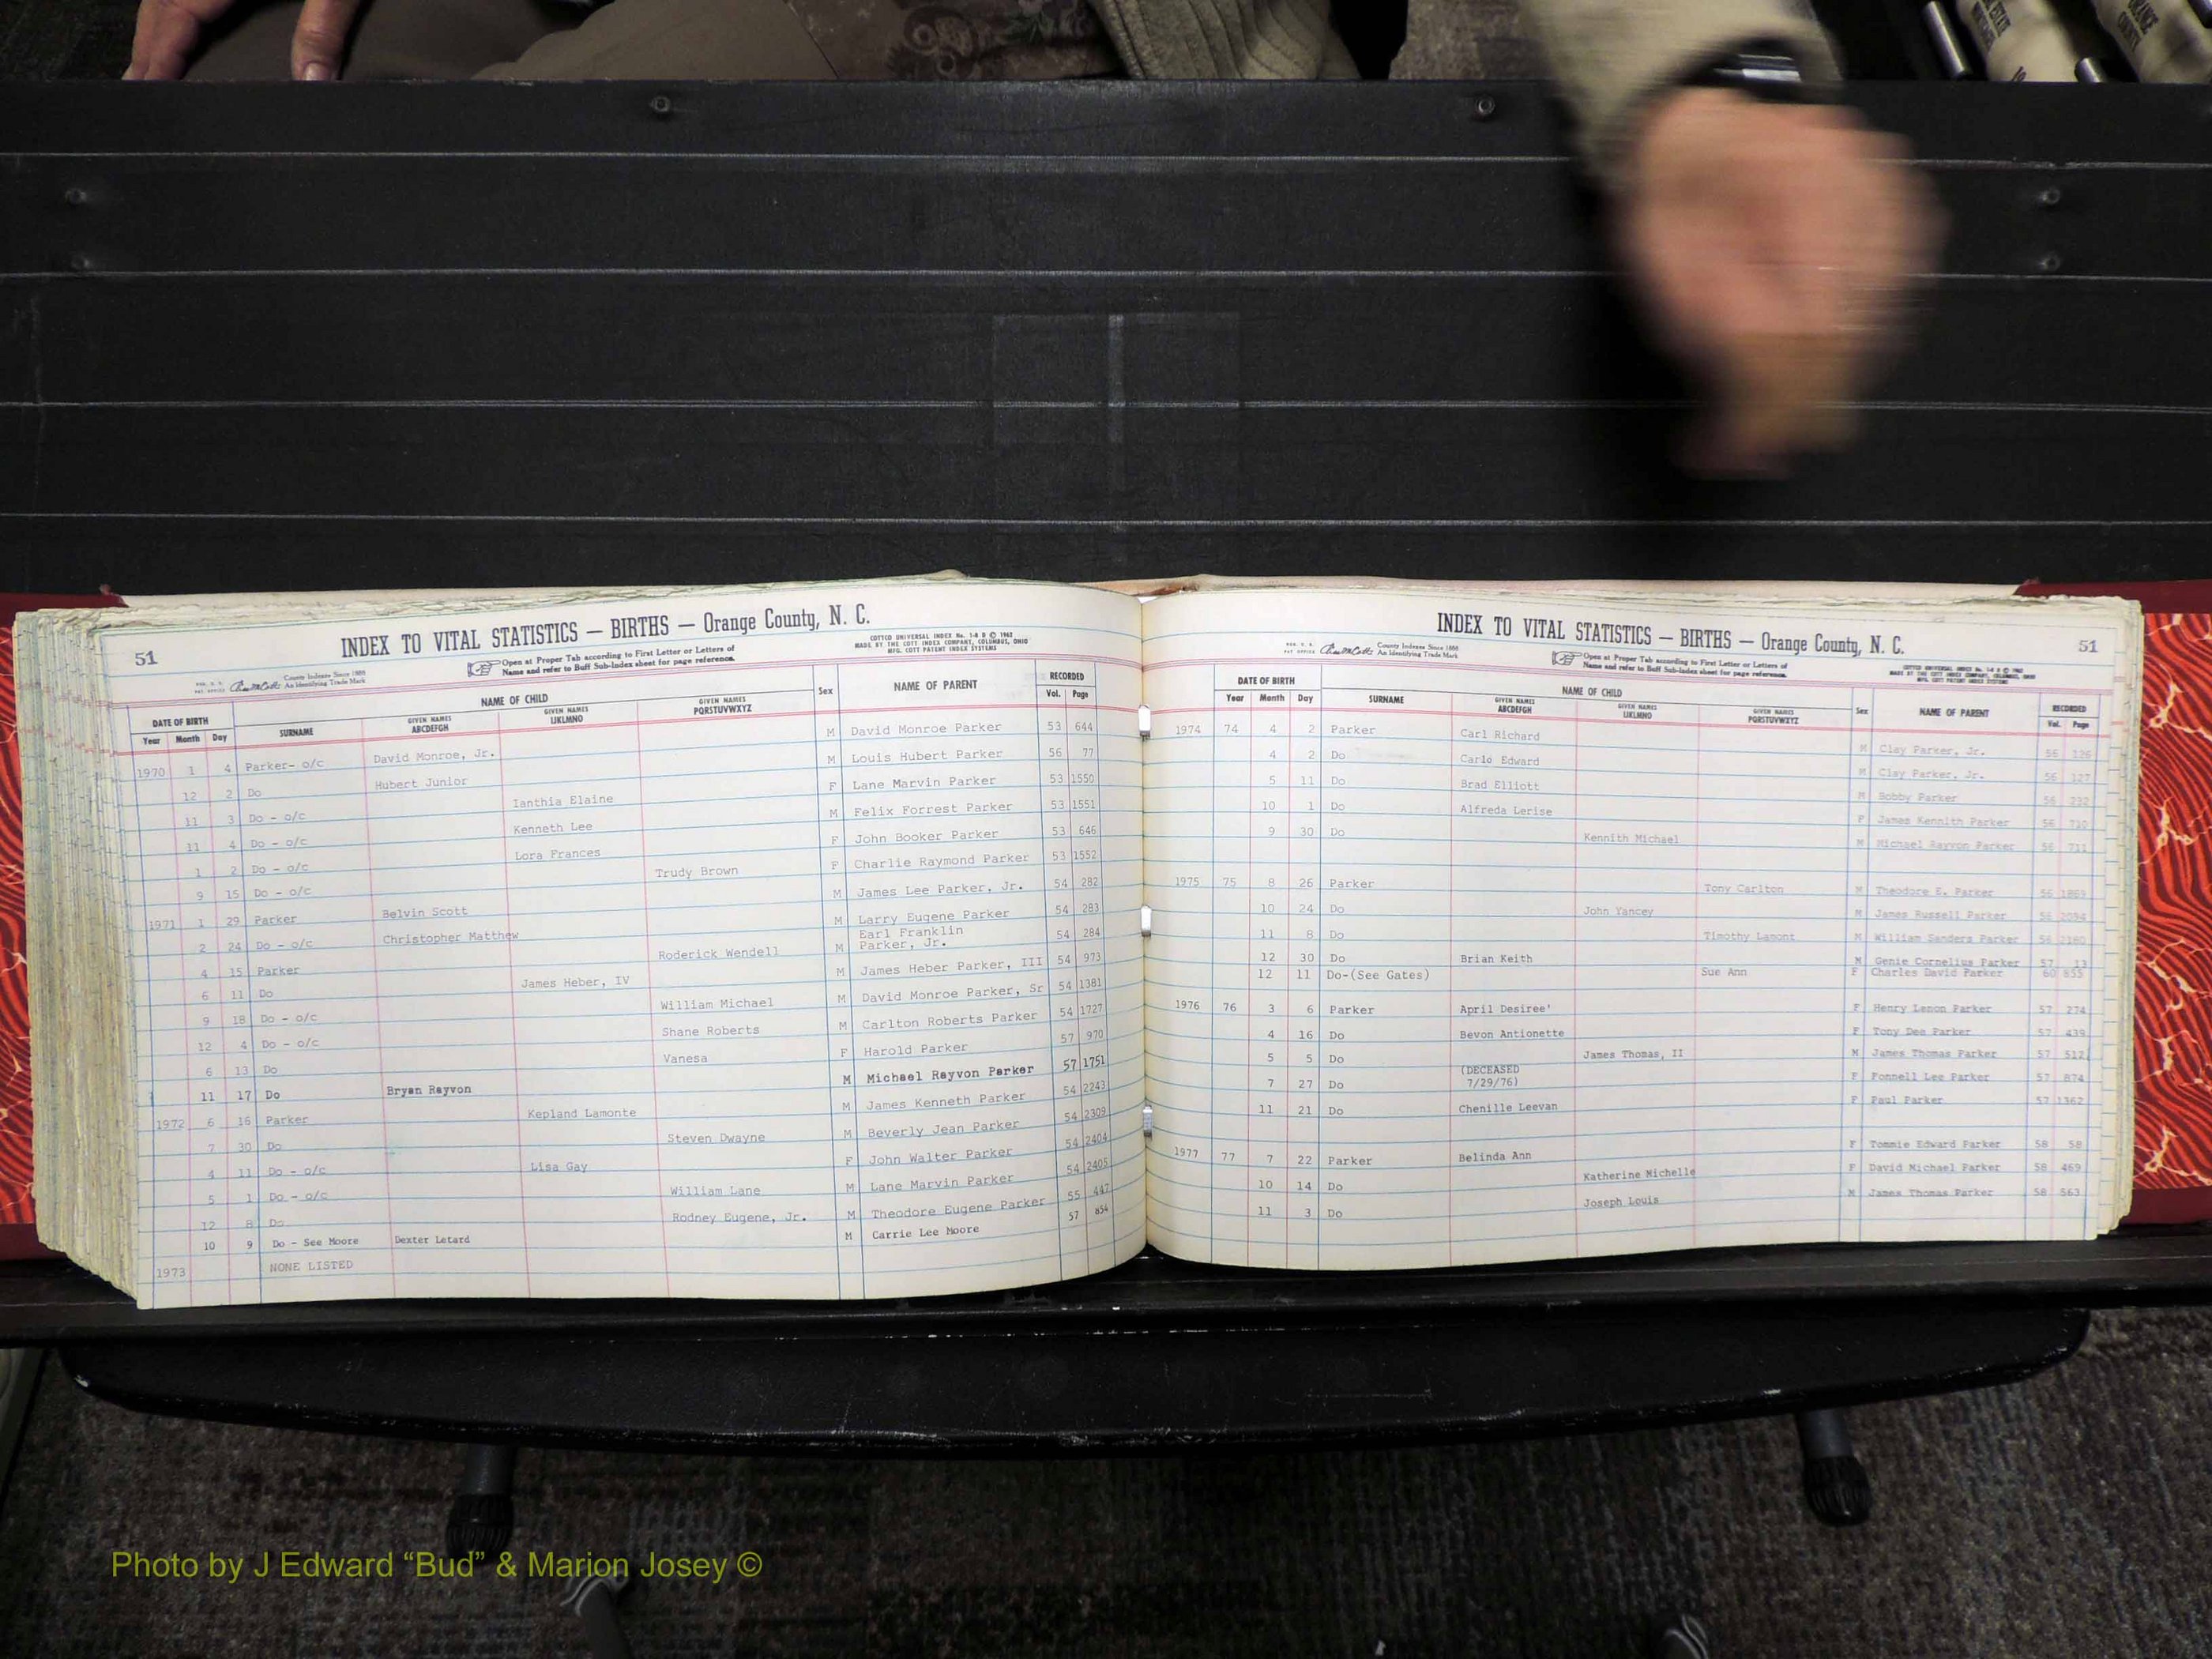 51
INDEX TO VITAL STATISTICS — BIRTHS — Orange County, N. C.
County Indexes Since 1888
An Identifying Trade Mark
Open at Proper Tab according to First Letter or Letters of
Name and refer to Buff Sub-Index sheet for page reference.
COTTCO UNIVERSAL INDEX No. 1-8 B © 1962
MADE BY THE COTT INDEX COMPANY, COLUMBUS, OHIO
MFG. COTT PATENT INDEX SYSTEMS
DATE OF BIRTH NAME OF CHILD Sex NAME OF PARENT RECORDED
Year Month Day SURNAME GIVEN NAMES ABCDEFGH GIVEN NAMES IJKLMNO GIVEN NAMES PQRSTUVWXYZ Vol. Page
1970 1 4 Parker- o/c David Monroe, Jr. M David Monroe Parker 53 644
12 2 Do Hubert Junior M Louis Hubert Parker 56 77
11 3 Do - o/c Ianthia Elaine F Lane Marvin Parker 53 1550
11 4 Do - o/c Kenneth Lee M Felix Forrest Parker 53 1551
1 2 Do - o/c Lora Frances F John Booker Parker 53 646
9 15 Do - o/c Trudy Brown F Charlie Raymond Parker 53 1552
1971 1 29 Parker Belvin Scott M James Lee Parker, Jr. 54 282
2 24 Do - o/c Christopher Matthew M Larry Eugene Parker 54 283
4 15 Parker Roderick Wendell M Earl Franklin Parker, Jr. 54 284
6 11 Do James Heber, IV M James Heber Parker, III 54 973
9 18 Do - o/c William Michael M David Monroe Parker, Sr 54 1381
12 4 Do - o/c Shane Roberts M Carlton Roberts Parker 54 1727
6 13 Do Vanesa F Harold Parker 57 970
11 17 Do Bryan Rayvon M Michael Rayvon Parker 57 1751
1972 6 16 Parker Kepland Lamonte M James Kenneth Parker 54 2243
7 30 Do Steven Dwayne M Beverly Jean Parker 54 2309
4 11 Do - o/c Lisa Gay F John Walter Parker 54 2404
5 1 Do - o/c William Lane M Lane Marvin Parker 54 2405
12 8 Do Rodney Eugene, Jr. M Theodore Eugene Parker 55 447
10 9 Do - See Moore Dexter Letard M Carrie Lee Moore 57 854
1973 NONE LISTED
INDEX TO VITAL STATISTICS — BIRTHS — Orange County, N. C.
51
County Indexes Since 1888
An Identifying Trade Mark
Open at Proper Tab according to First Letter or Letters of
Name and refer to Buff Sub-Index sheet for page reference.
DATE OF BIRTH NAME OF CHILD Sex NAME OF PARENT RECORDED
Year Month Day SURNAME GIVEN NAMES ABCDEFGH GIVEN NAMES IJKLMNO GIVEN NAMES PQRSTUVWXYZ Vol. Page
1974 74 4 2 Parker Carl Richard M Clay Parker, Jr. 56 126
4 2 Do Carlo Edward M Clay Parker, Jr. 56 127
5 11 Do Brad Elliott M Bobby Parker 56 232
10 1 Do Alfreda Lerise F James Kennith Parker 56 710
9 30 Do Kennith Michael M Michael Rayvon Parker 56 711
1975 75 8 26 Parker Tony Carlton M Theodore E. Parker 56 1869
10 24 Do John Yancey M James Russell Parker 56 2094
11 8 Do Timothy Lamont M William Sanders Parker 56 2180
12 30 Do Brian Keith M Genie Cornelius Parker 57 13
12 11 Do-(See Gates) Sue Ann F Charles David Parker 60 855
1976 76 3 6 Parker April Desiree' F Henry Lenon Parker 57 274
4 16 Do Bevon Antionette F Tony Dee Parker 57 439
5 5 Do James Thomas, II M James Thomas Parker 57 512
7 27 Do (DECEASED 7/29/76) F Fonnell Lee Parker 57 874
11 21 Do Chenille Leevan F Paul Parker 57 1362
1977 77 7 22 Parker Belinda Ann F Tommie Edward Parker 58 58
10 14 Do Katherine Michelle F David Michael Parker 58 469
11 3 Do Joseph Louis M James Thomas Parker 58 563
Photo by J Edward “Bud” & Marion Josey ©